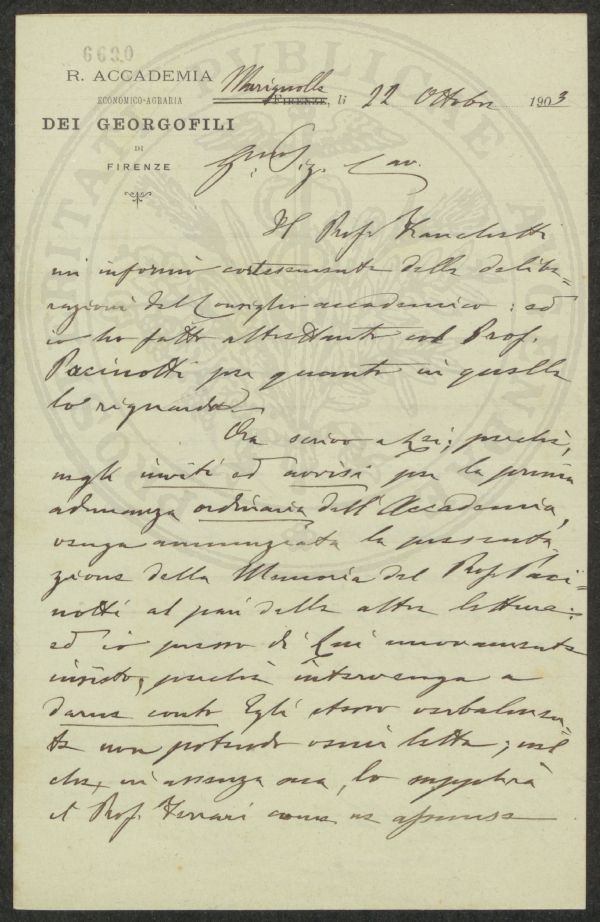 6690
R. ACCADEMIA
ECONOMICO-AGRARIA
DEI GEORGOFILI
DI
FIRENZE
Marignolle
FIRENZE, li 22 Ottobre 1903
Sig. Cav.
Il Prof. Franchetti
mi informò cortesemente delle delibe=
razioni del Consiglio accademico: ed
io ho fatto altrettanto col Prof.
Pacinotti per quanto in quelle
lo riguarda.
Ora scrivo a Lei; perchè,
negli inviti ed avvisi per la prima
adunanza ordinaria dell'Accademia,
venga annunziata la presenta
zione della Memoria del Prof. Paci=
notti al pari delle altre letture:
ed io presso di Lui nuovamente
insisto, perchè intervenga a
darne conto Egli stesso verbalmen=
te non potendo venir letta; nel
che, in assenza sua, lo supplirà
il Prof. Ferrari come ne assunse